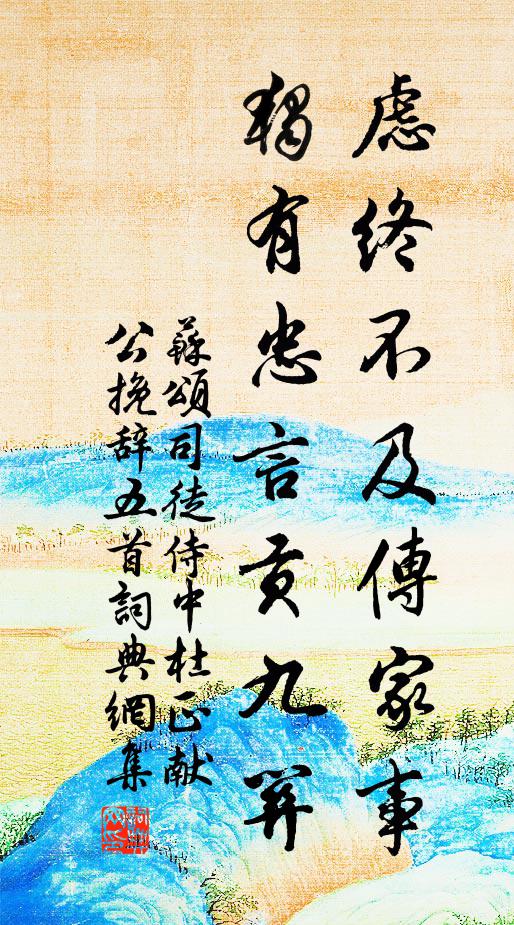 慮終不及傳家事
獨有忠言貢九
蘇頌司徒侍中杜正献
公挽辞五首詞典網集